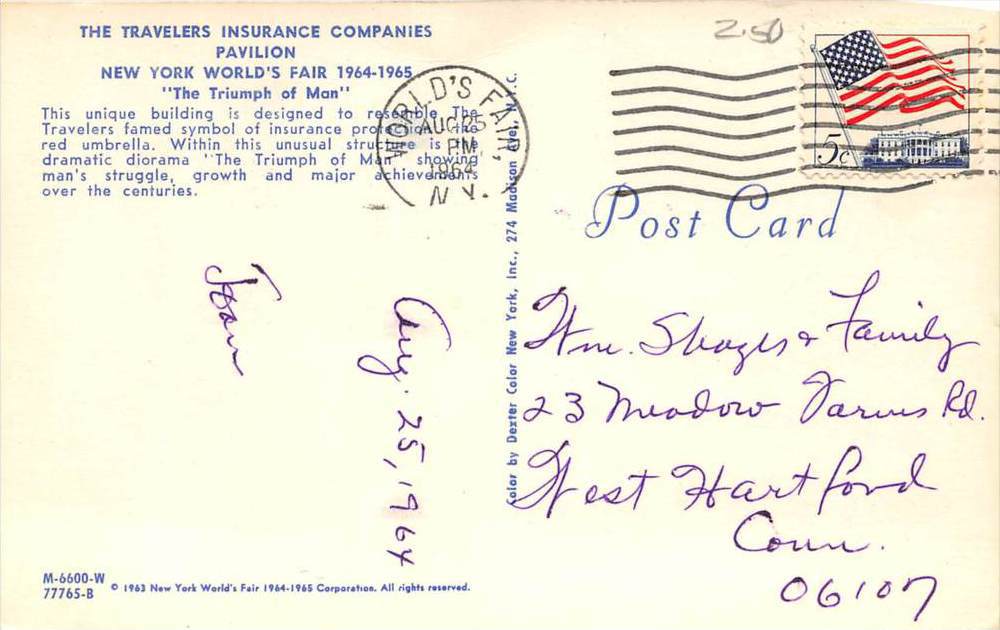 THE TRAVELERS INSURANCE COMPANIES
PAVILION
NEW YORK WORLD'S FAIR 1964-1965
"The Triumph of Man"
This unique building is designed to resemble The
Travelers famed symbol of insurance protection the
red umbrella. Within this unusual structure is the
dramatic diorama "The Triumph of Man" showing
man's struggle, growth and major achievements
over the centuries.
WORLD'S FAIR,
AUG 25
PM
1964
N.Y.
2.50
5c
Post Card
Color by Dexter Color New York, Inc., 274 Madison Ave., N.Y.C.
Joan
Aug. 25, 1964
Wm. & Family
23 Meadow Farms Rd.
West Hartford
Conn.
06107
M-6600-W
77765-B
© 1963 New York World's Fair 1964-1965 Corporation. All rights reserved.